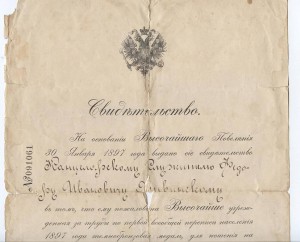 Свидѣтельство.
На основаніи Высочайшаго Повелѣнія
30 Января 1897 года выдано сіе свидѣтельство
Канцелярскому Служителю
Ивановичу
въ томъ, что ему пожалована Высочайше учреж-
денная за труды по первой всеобщей переписи населенія
1897 года темнобронзовая медаль, для ношенія на
№091061